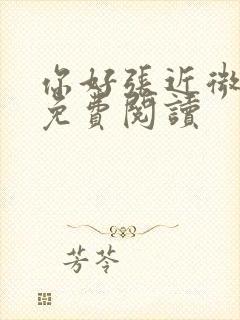 你好張近微
免費閱讀
芳苓